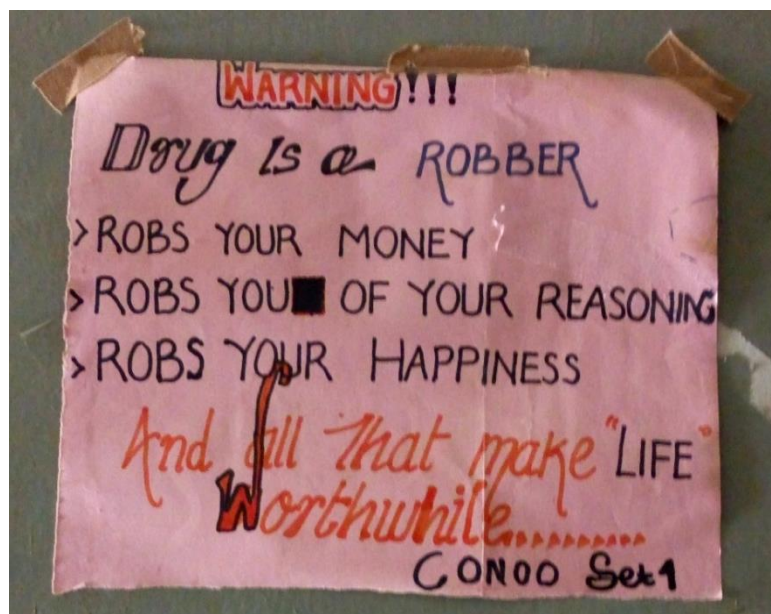 WARNING!!!
Drug Is a ROBBER
> ROBS YOUR MONEY
> ROBS YOU OF YOUR REASONING
> ROBS YOUR HAPPINESS
And all that make "LIFE"
Worthwhile..........
CONOO Set 1